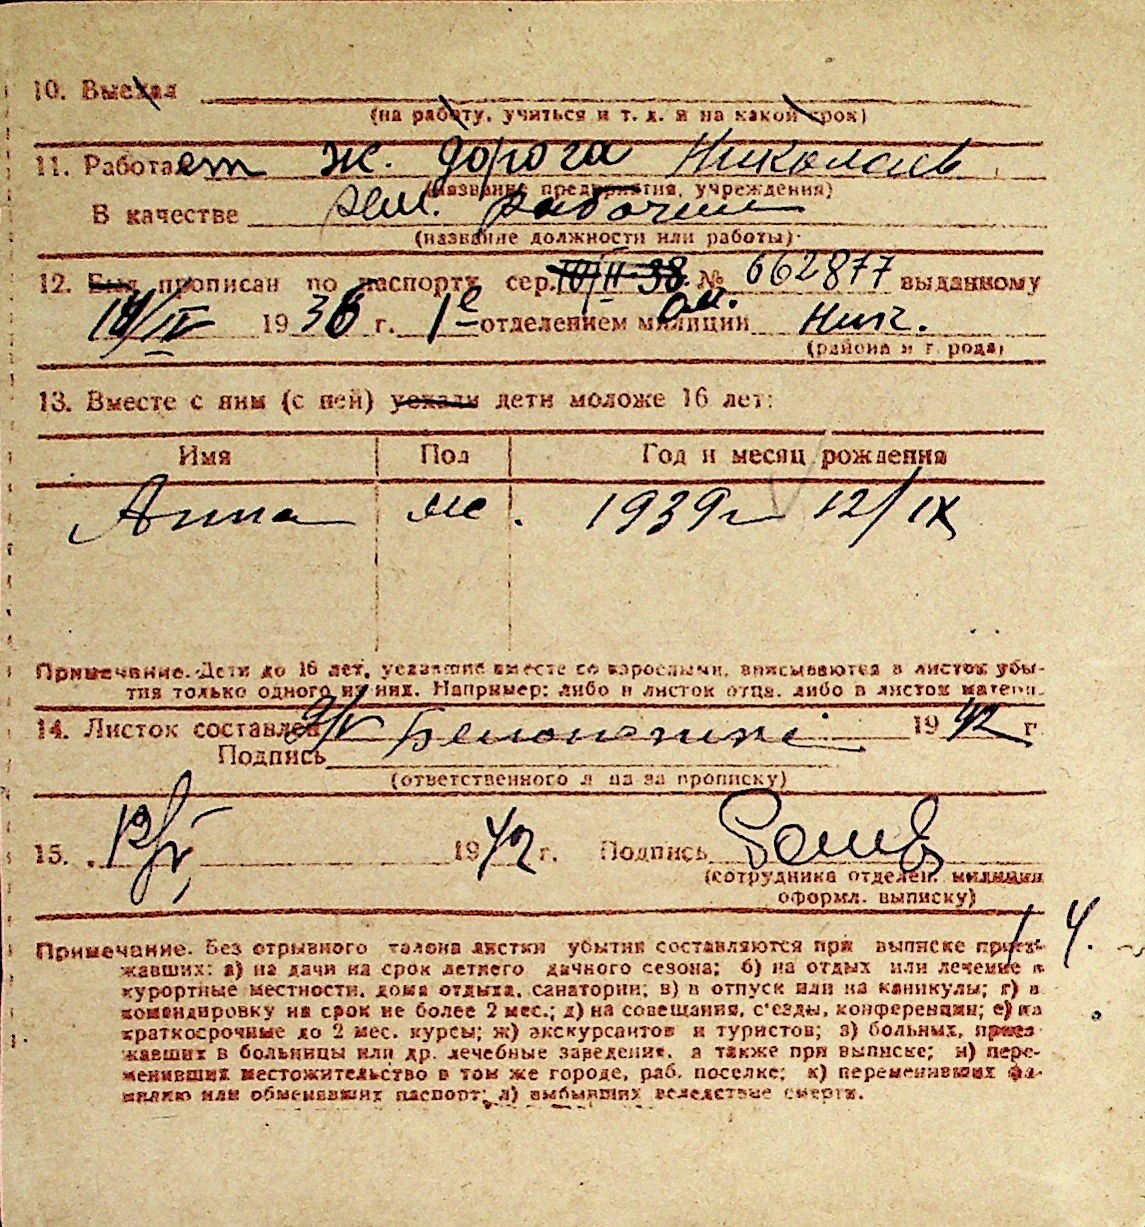 10. Выехал
(на работу, учиться и т. д. и на какой срок)
11. Работает ж. дорога Николаев
(название предприятия, учреждения)
В качестве рем. рабочий
(название должности или работы)
12. Был прописан по паспорту сер. № 662877 выданному
14/IV 1936 г. 1е отделением милиции Ник.
(района и города)
13. Вместе с ним (с ней) уехали дети моложе 16 лет:
Имя Пол Год и месяц рождения
Анна ж. 1939 г 12/IX
Примечание. Дети до 16 лет, уехавшие вместе со взрослыми, вписываются в листок убы-
тия только одного из них. Например: либо в листок отца, либо в листок матери.
14. Листок составлен 9/V 1942 г
Подпись
(ответственного л на за прописку)
15. 12/V 1942 г. Подпись
(сотрудника отделен. милиции
оформл. выписку)
Примечание. Без отрывного талона листки убытия составляются при выписке приез-
жавших: а) на дачи на срок летнего дачного сезона; б) на отдых или лечение в
курортные местности, дома отдыха, санатории; в) в отпуск или на каникулы; г) в
командировку на срок не более 2 мес.; д) на совещания, с'езды, конференции; е) на
краткосрочные до 2 мес. курсы; ж) экскурсантов и туристов; з) больных, приез-
жавших в больницы или др. лечебные заведения, а также при выписке; и) пере-
менивших местожительство в том же городе, раб. поселке; к) переменивших фа-
милию или обменявших паспорт; л) выбывших вследствие смерти.